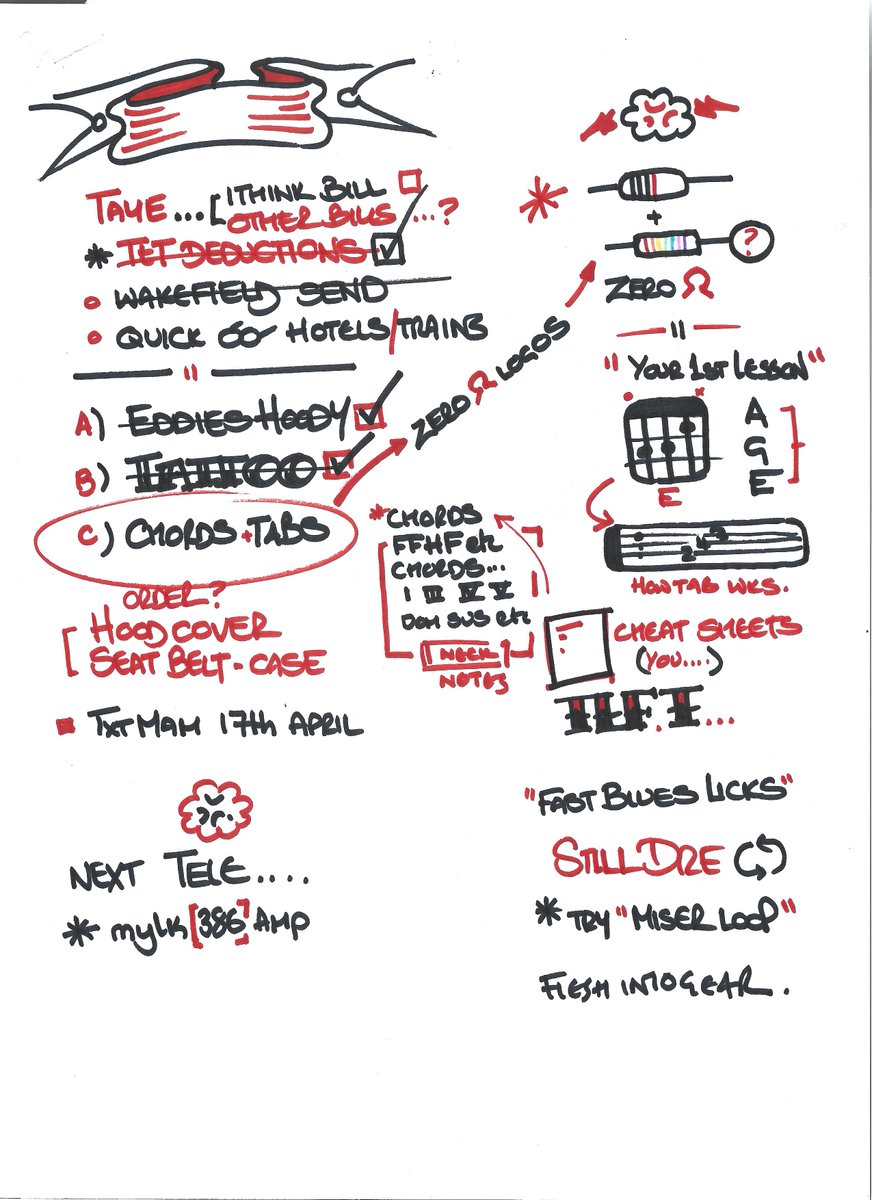 TAME... [ I THINK BILL
OTHER BILLS ...?
* IET DEDUCTIONS
WAKEFIELD SEND
QUICK GO HOTELS/TRAINS
"
A) EDDIES HOODY
B) TATTOO
C) CHORDS + TABS
ZERO Ω LOGOS
ORDER?
[ HOOD COVER
SEAT BELT - CASE
TXT MAM 17th APRIL
NEXT TELE....
* mylk [386] AMP
* CHORDS
FFHF etc
CHORDS...
I III IV V
DOM SUS etc
NECK
NOTES
*
+
?
ZERO Ω
"
"YOUR 1ST LESSON"
A
G
E
E
2 4 2
HOW TAB WKS.
CHEAT SHEETS
(YOU....)
"FAST BLUES LICKS"
STILL DRE
* TRY "MISER LOOP"
FLESH INTO GEAR.